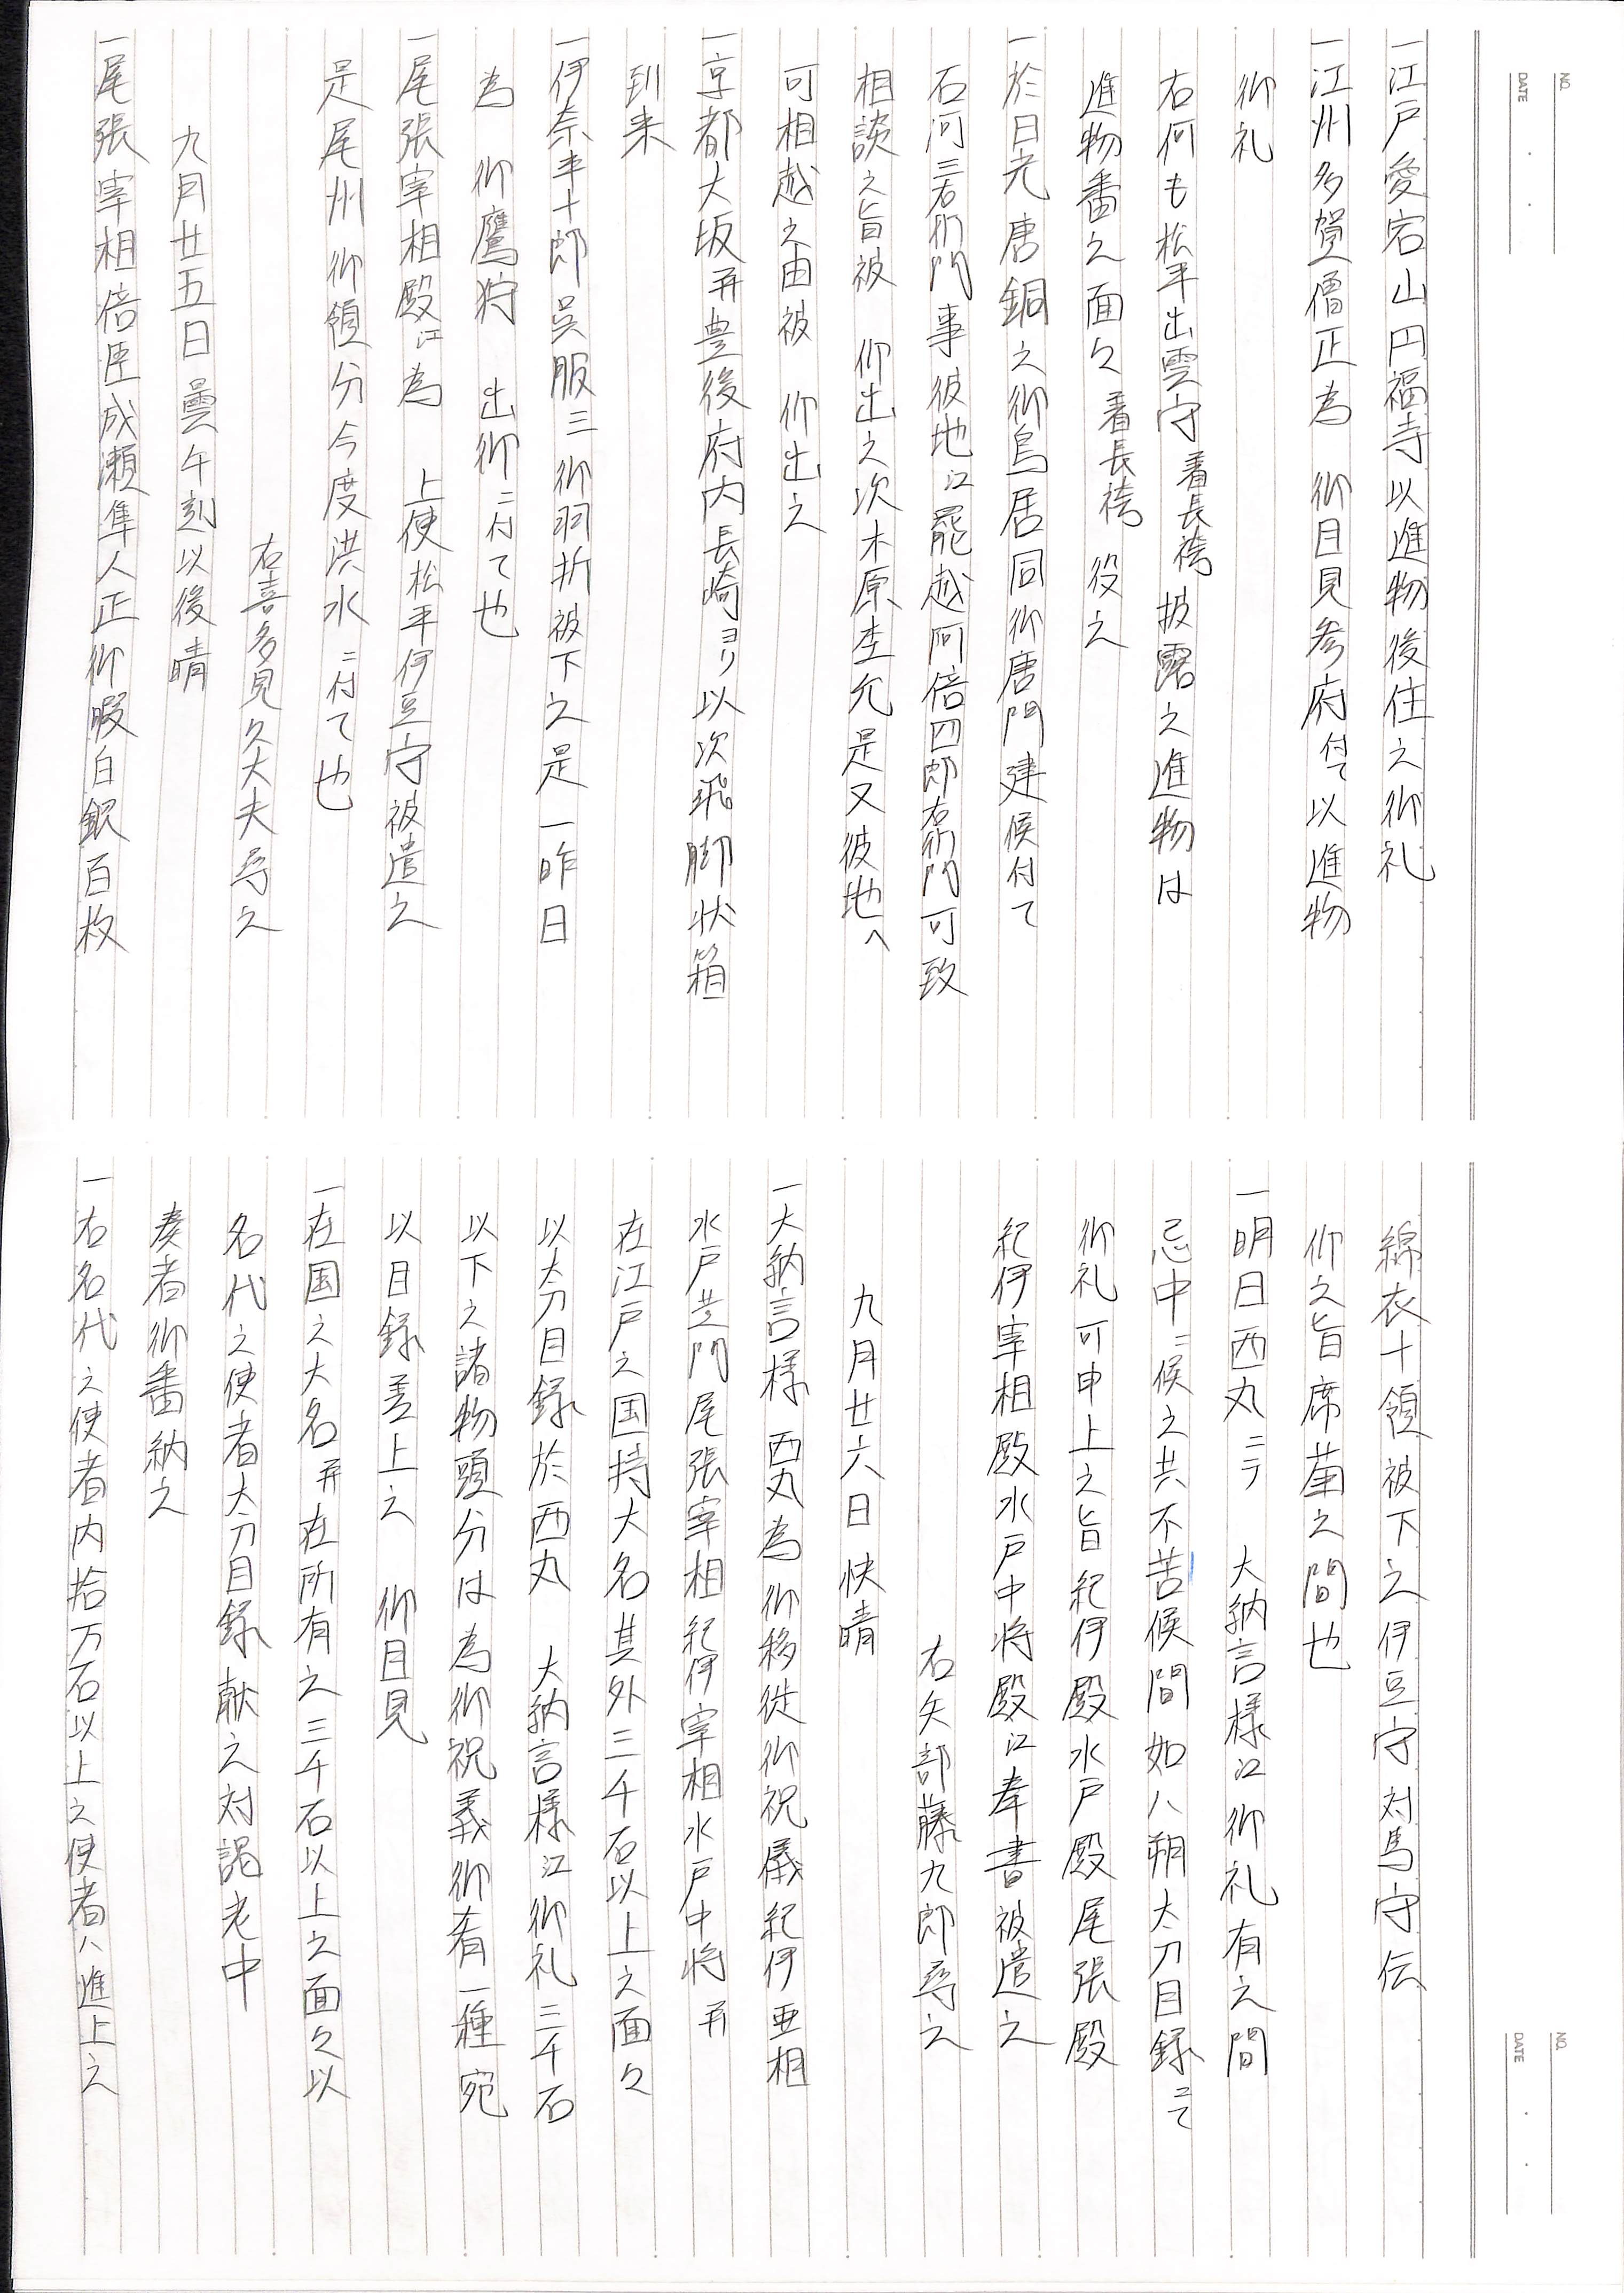 NO.
DATE
一江戸愛宕山円福寺以進物後住之御礼
一江州多賀僧正為 御目見参府付て以進物
御礼
右何も松平出雲守着長袴披露之進物は
進物番之面々着長袴 役之
一於日光唐銅之御鳥居同御唐門建候付て
石河三右衛門事彼地江罷越阿倍四郎右衛門可致
相談之旨被 仰出之次木原杢允是又彼地へ
可相越之由被 仰出之
一京都大坂并豊後府内長崎ヨリ以次飛脚状箱
到来
一伊奈半十郎呉服三御羽折被下之是一昨日
為 御鷹狩 出御ニ付て也
一尾張宰相殿江為 上使松平伊豆守被遣之
是尾州御領分今度洪水ニ付て也
右喜多見久大夫尋之
九月廿五日曇午刻以後晴
一尾張宰相倍臣成瀬隼人正御暇白銀百枚
NO.
DATE
綿衣十領被下之伊豆守対馬守伝
仰之旨席菫之間也
一明日西丸ニテ 大納言様江御礼有之間
忌中ニ候之共不苦候間如八朔太刀目録ニて
御礼可申上之旨紀伊殿水戸殿尾張殿
紀伊宰相殿水戸中将殿江奉書被遣之
右矢部藤九郎尋之
九月廿六日快晴
一大納言様西丸為御移徙御祝儀紀伊亜相
水戸黄門尾張宰相紀伊宰相水戸中将并
在江戸之国持大名其外三千石以上之面々
以太刀目録於西丸 大納言様江御礼三千石
以下之諸物頭分は為御祝義御肴一種宛
以目録差上之 御目見
一在国之大名并在所有之三千石以上之面々以
名代之使者太刀目録献之対謁老中
奏者御番納之
一右名代之使者内拾万石以上之使者ハ進上之